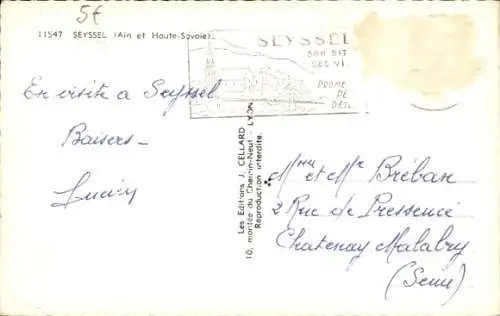 5f
11547 SEYSSEL (Ain et Haute-Savoie)
SEYSSEL
SON SIT
SES VI
PROME
PE
DÉT
En visite a Seyssel
Baisers -
Lucien
Les Editions J. CELLARD
10, montée du Chemin-Neuf - LYON
Reproduction interdite.
Mme et Mr Bréban
2 Rue de Pressencé
Chatenay Malabry
(Seine)